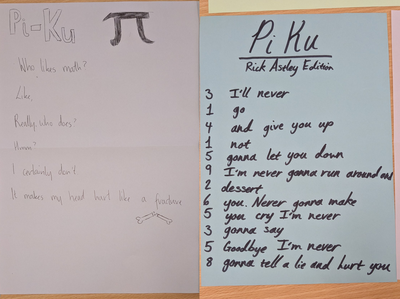 Pi-Ku π
Who likes math?
Like,
Really, who does?
Hmm?
I certainly don't.
It makes my head hurt like a fracture
Pi Ku
Rick Astley Edition
3 I'll never
1 go
4 and give you up
1 not
5 gonna let you down
9 I'm never gonna run around and
2 dessert
6 you. Never gonna make
5 you cry I'm never
3 gonna say
5 Goodbye I'm never
8 gonna tell a lie and hurt you